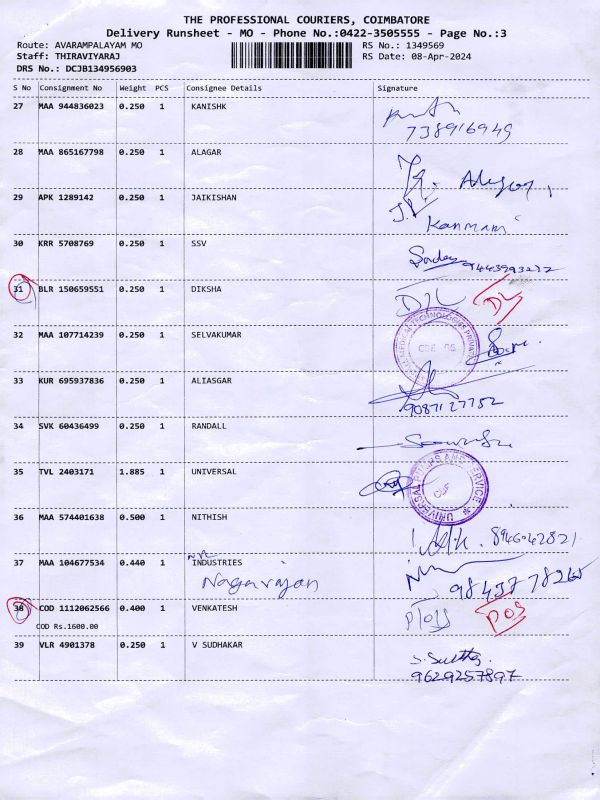 THE PROFESSIONAL COURIERS, COIMBATORE
Delivery Runsheet - MO - Phone No.:0422-3505555 - Page No.:3
Route: AVARAMPALAYAM MO RS No.: 1349569
Staff: THIRAVIYARAJ RS Date: 08-Apr-2024
DRS No.: DCJB134956903
S No Consignment No Weight PCS Consignee Details Signature
27 MAA 944836023 0.250 1 KANISHK
738916949
28 MAA 865167798 0.250 1 ALAGAR
29 APK 1289142 0.250 1 JAIKISHAN
Kanmani
30 KRR 5708769 0.250 1 SSV
31 BLR 150659551 0.250 1 DIKSHA
D/L DL
32 MAA 107714239 0.250 1 SELVAKUMAR
33 KUR 695937836 0.250 1 ALIASGAR
9087127752
34 SVK 60436499 0.250 1 RANDALL
35 TVL 2403171 1.885 1 UNIVERSAL
36 MAA 574401638 0.500 1 NITHISH
8946042821
37 MAA 104677534 0.440 1 INDUSTRIES
Nagarajan
9843778265
38 COD 1112062566 0.400 1 VENKATESH
COD Rs.1600.00
POS
39 VLR 4901378 0.250 1 V SUDHAKAR
9629257897